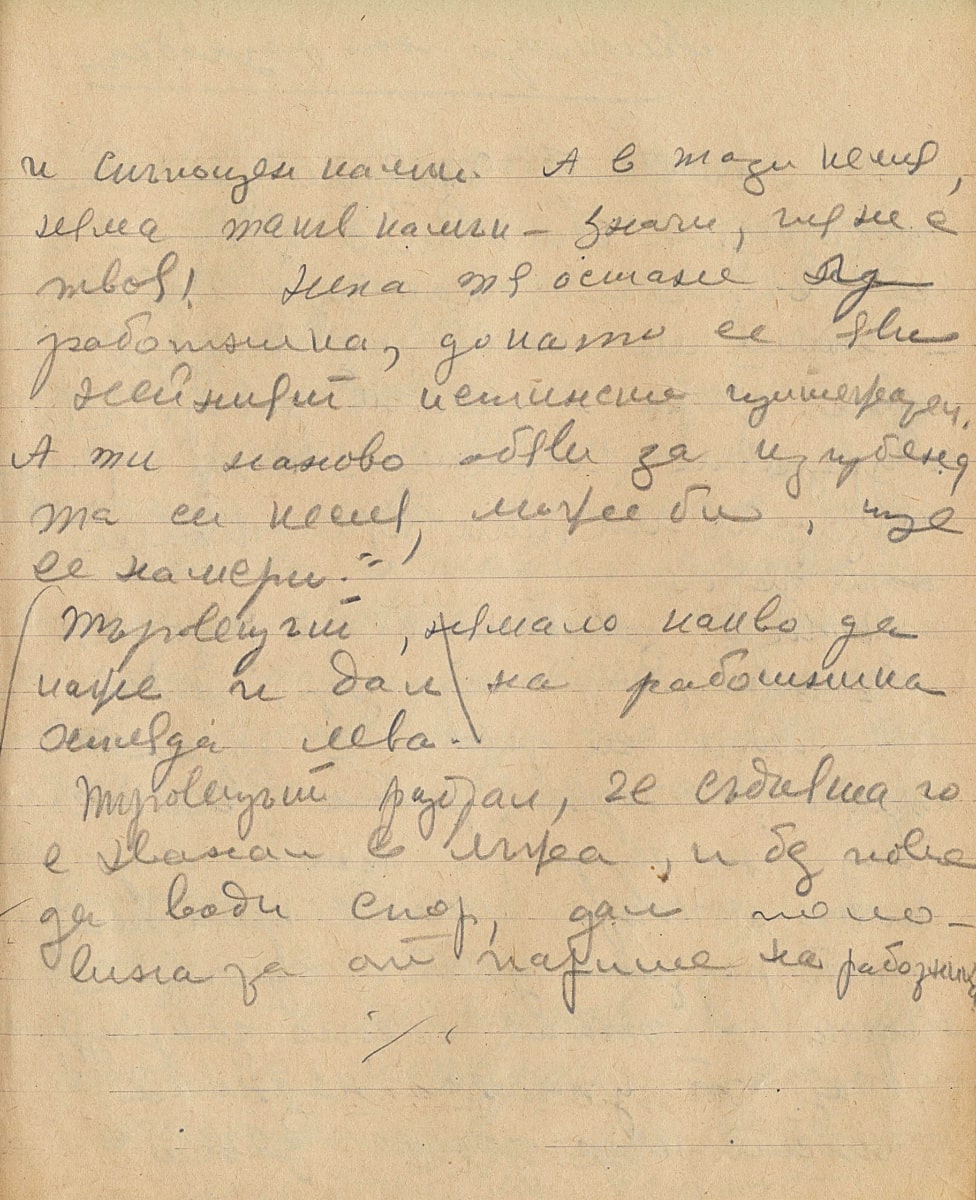 и скъпоценъ камък. А в тази кесия,
няма такъв камък – значи, тя не е
твоя! Нека тя остане
работника, докато се яви
нейният истински притежател.
А ти наново обяви за изгубена
та си кесия, може би, ще
се намери."
Търговецът, нямало какво да
каже и дал на работника
хиляда лева.
Търговецът разбрал, че съдията го
е хванал в лъжа, и без повече
да води спор, дал поло-
вината от парите на работника